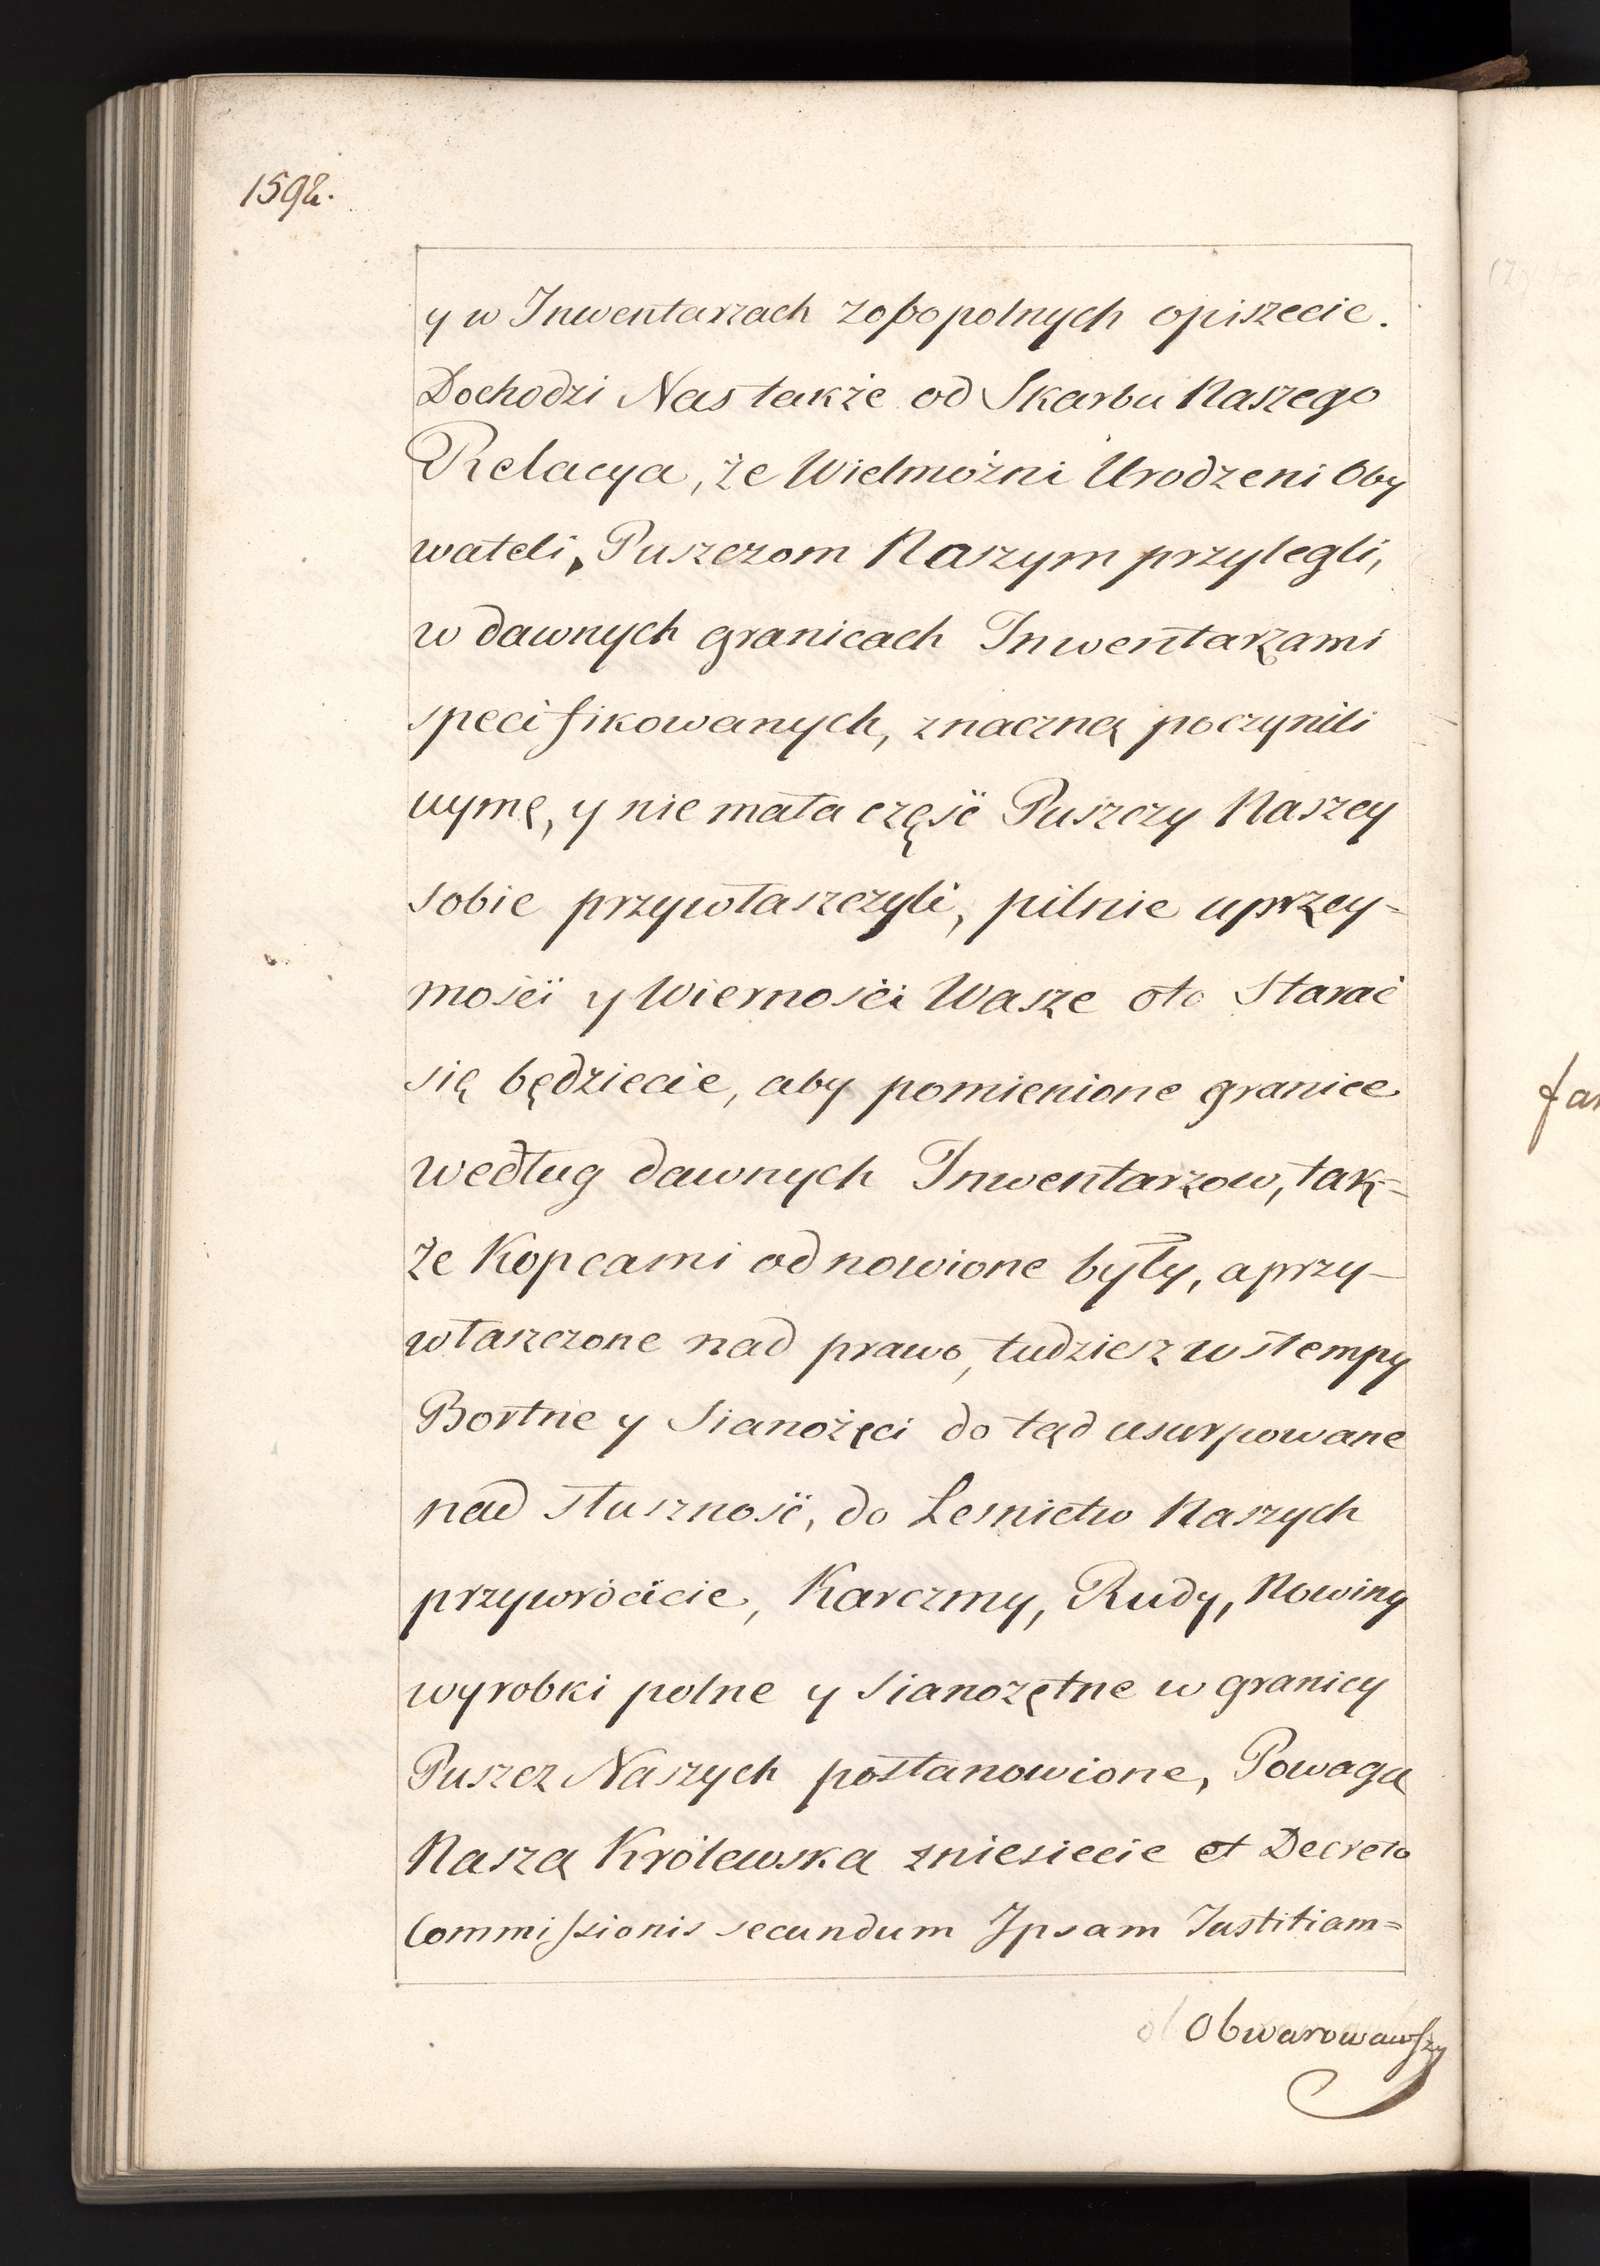 1592.
y w Inwentarzach zobopolnych opiszecie.
Dochodzi Nas także od Skarbu Naszego
Relacya, że Wielmożni Urodzeni Oby
wateli, Puszczom Naszym przylegli,
w dawnych granicach Inwentarzami
specifikowanych, znaczną poczynili
uymę, y nie mała część Puszczy Naszey
sobie przywłaszczyli, pilnie uprzey-
mości y Wierności Wasze oto starać
się będziecie, aby pomienione granice
według dawnych Inwentarzow, tak-
że Kopcami odnowione były, a przy-
własczone nad prawo, tudziesz wstempy
Bortne y Sianożęci do tąd usurpowane
nad słuszność, do Lesnictw Naszych
przywrócicie, Karczmy, Rudy, Nowiny
wyrobki polne y sianozętne w granicy
Puszcz Naszych postanowione, Powagą
Naszą Królewska zniesiecie et Decreto
Commissionis secundum Ipsam Iustitiam=
Obwarowawszy